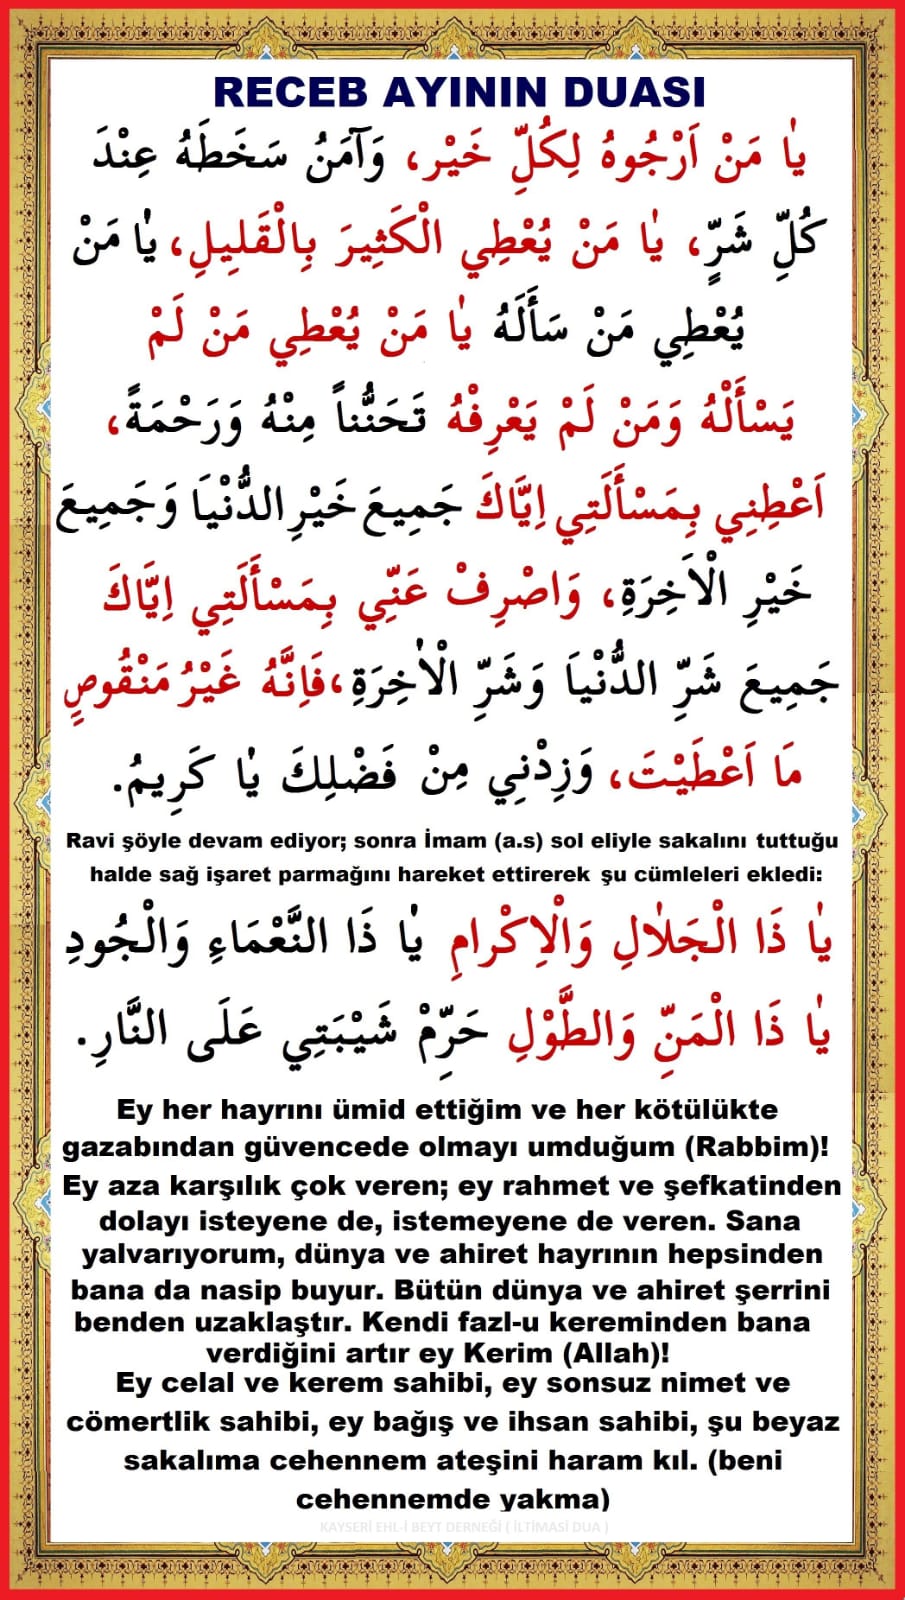 RECEB AYININ DUASI
يٰا مَنْ اَرْجُوهُ لِكُلِّ خَيْرٍ، وَآمَنُ سَخَطَهُ عِنْدَ
كُلِّ شَرٍّ، يٰا مَنْ يُعْطِي الْكَثِيرَ بِالْقَلِيلِ، يٰا مَنْ
يُعْطِي مَنْ سَأَلَهُ يٰا مَنْ يُعْطِي مَنْ لَمْ
يَسْأَلْهُ وَمَنْ لَمْ يَعْرِفْهُ تَحَنُّناً مِنْهُ وَرَحْمَةً،
اَعْطِنِي بِمَسْأَلَتِي اِيَّاكَ جَمِيعَ خَيْرِ الدُّنْيَا وَجَمِيعَ
خَيْرِ الْاَخِرَةِ، وَاصْرِفْ عَنِّي بِمَسْأَلَتِي اِيَّاكَ
جَمِيعَ شَرِّ الدُّنْيَا وَشَرِّ الْاٰخِرَةِ، فَاِنَّهُ غَيْرُ مَنْقُوصٍ
مَا اَعْطَيْتَ، وَزِدْنِي مِنْ فَضْلِكَ يٰا كَرِيمُ.
Ravi şöyle devam ediyor; sonra İmam (a.s) sol eliyle sakalını tuttuğu
halde sağ işaret parmağını hareket ettirerek şu cümleleri ekledi:
يٰا ذَا الْجَلٰالِ وَالْاِكْرامِ يٰا ذَا النَّعْمَاءِ وَالْجُودِ
يٰا ذَا الْمَنِّ وَالطَّوْلِ حَرِّمْ شَيْبَتِي عَلَى النَّارِ.
Ey her hayrını ümid ettiğim ve her kötülükte
gazabından güvencede olmayı umduğum (Rabbim)!
Ey aza karşılık çok veren; ey rahmet ve şefkatinden
dolayı isteyene de, istemeyene de veren. Sana
yalvarıyorum, dünya ve ahiret hayrının hepsinden
bana da nasip buyur. Bütün dünya ve ahiret şerrini
benden uzaklaştır. Kendi fazl-u kereminden bana
verdiğini artır ey Kerim (Allah)!
Ey celal ve kerem sahibi, ey sonsuz nimet ve
cömertlik sahibi, ey bağış ve ihsan sahibi, şu beyaz
sakalıma cehennem ateşini haram kıl. (beni
cehennemde yakma)
KAYSERİ EHL-İ BEYT DERNEĞİ ( İLTİMASİ DUA )